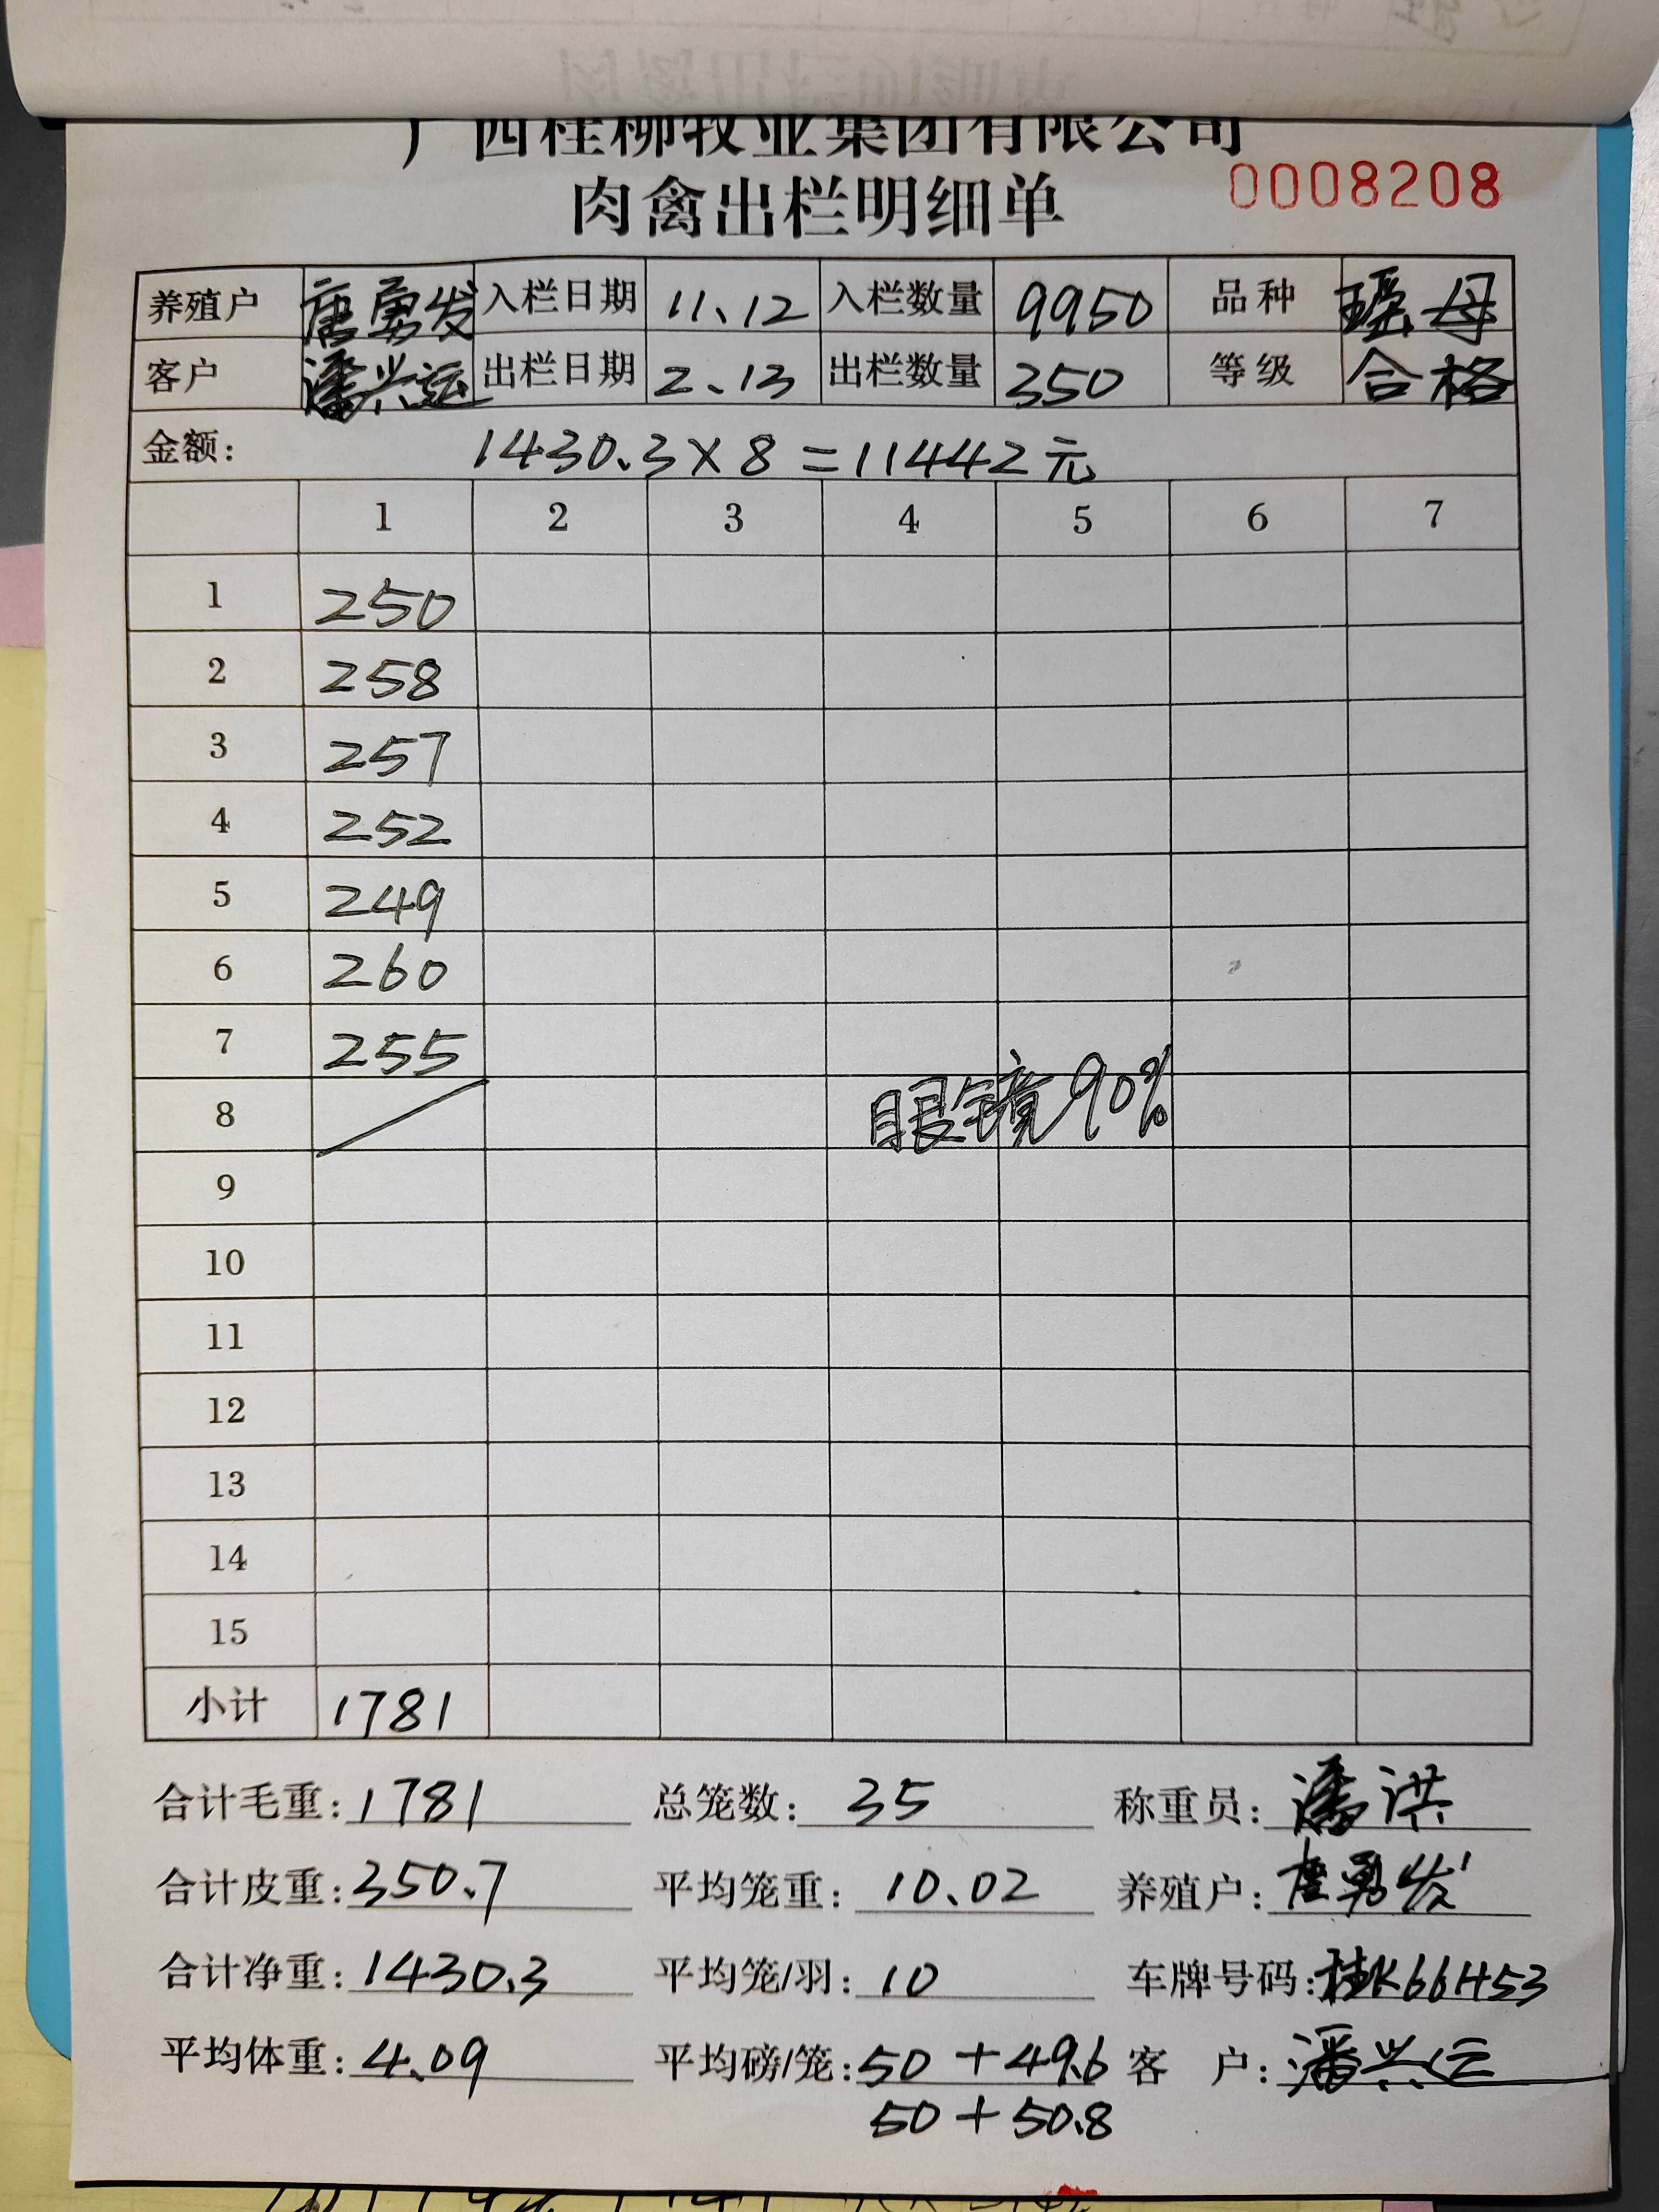 广西桂柳牧业集团有限公司
肉禽出栏明细单
0008208
养殖户 唐勇发 入栏日期 11、12 入栏数量 9950 品种 瑶母
客户 潘兴运 出栏日期 2、13 出栏数量 350 等级 合格
金额： 1430.3×8=11442元
1 2 3 4 5 6 7
1 250
2 258
3 257
4 252
5 249
6 260
7 255
8 眼镜90%
9
10
11
12
13
14
15
小计 1781
合计毛重：1781 总笼数：35 称重员：潘洪
合计皮重：350.7 平均笼重：10.02 养殖户：唐勇发
合计净重：1430.3 平均笼/羽：10 车牌号码：桂K66H53
平均体重：4.09 平均磅/笼：50+49.6 客户：潘兴运
50+50.8